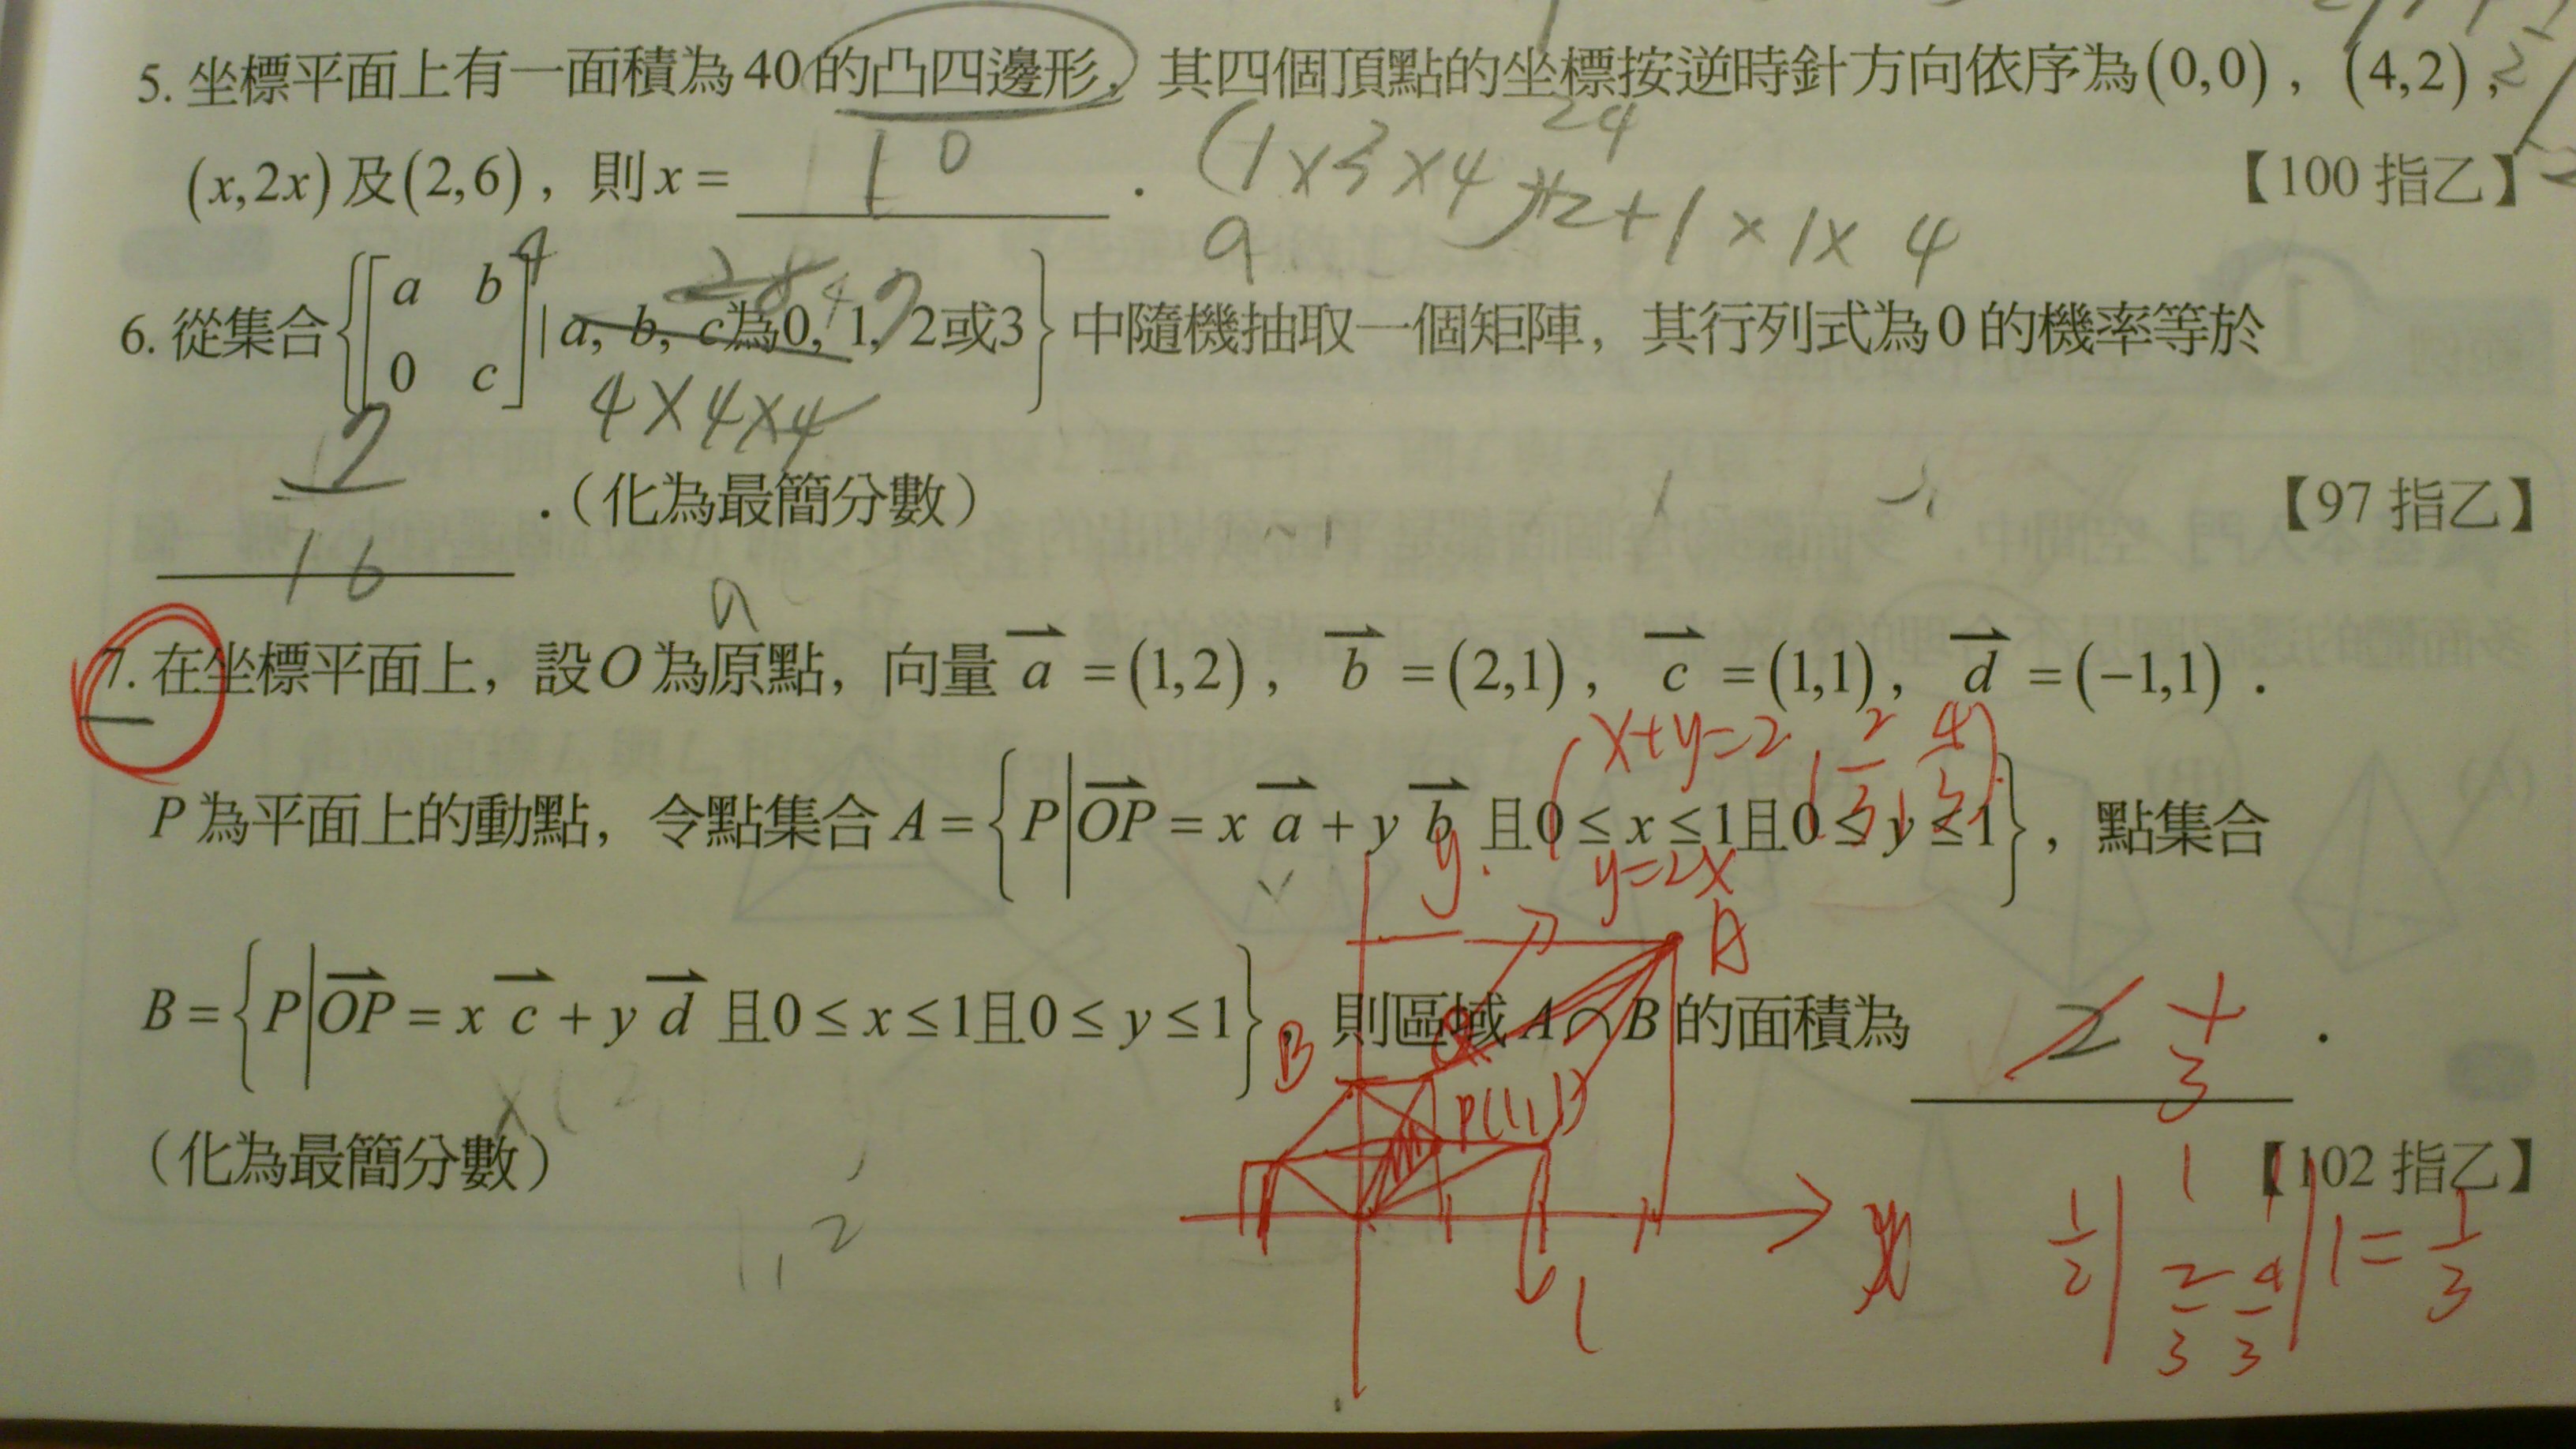 5. 坐標平面上有一面積為40的凸四邊形，其四個頂點的坐標按逆時針方向依序為(0,0)，(4,2)，
(x,2x)及(2,6)，則x = 10 .
【100 指乙】
(1×3×4)×2+1×1×4
24
6. 從集合{[a b; 0 c] | a, b, c為0, 1, 2或3}中隨機抽取一個矩陣，其行列式為0的機率等於
4×4×4
7/16 .（化為最簡分數）
【97 指乙】
7. 在坐標平面上，設O為原點，向量a⃗ = (1,2)，b⃗ = (2,1)，c⃗ = (1,1)，d⃗ = (−1,1)．
x+y=2 (2/3, 4/3)
y=2x
P為平面上的動點，令點集合A = {P | OP⃗ = x a⃗ + y b⃗ 且0 ≤ x ≤ 1且0 ≤ y ≤ 1}，點集合
B = {P | OP⃗ = x c⃗ + y d⃗ 且0 ≤ x ≤ 1且0 ≤ y ≤ 1}，則區域A∩B的面積為 1/3 .
（化為最簡分數）
【102 指乙】
y
A
B
P(1,1)
x
1/2 | 1 1; 2/3 4/3 | = 1/3